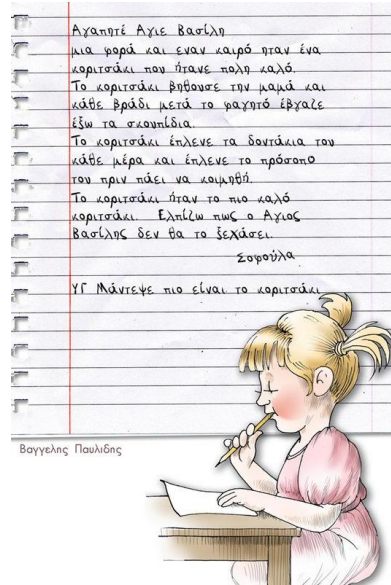 Αγαπητέ Αγιε Βασίλη
μια φορά και εναν καιρό ηταν ένα
κοριτσάκι που ήτανε πολη καλό.
Το κοριτσάκι βηθουσε την μαμά και
κάθε βράδι μετά το φαγητό έβγαζε
έξω τα σκουπίδια.
Το κοριτσάκι έπλενε τα δοντάκια του
κάθε μέρα και έπλενε το πρόσοπο
του πριν πάει να κοιμηθή.
Το κοριτσάκι ήταν το πιο καλό
κοριτσάκι. Ελπίζω πως ο Αγιος
Βασίλης δεν θα το ξεχάσει.
Σοφούλα
ΥΓ Μάντεψε πιο είναι το κοριτσάκι
Βαγγελης Παυλιδης